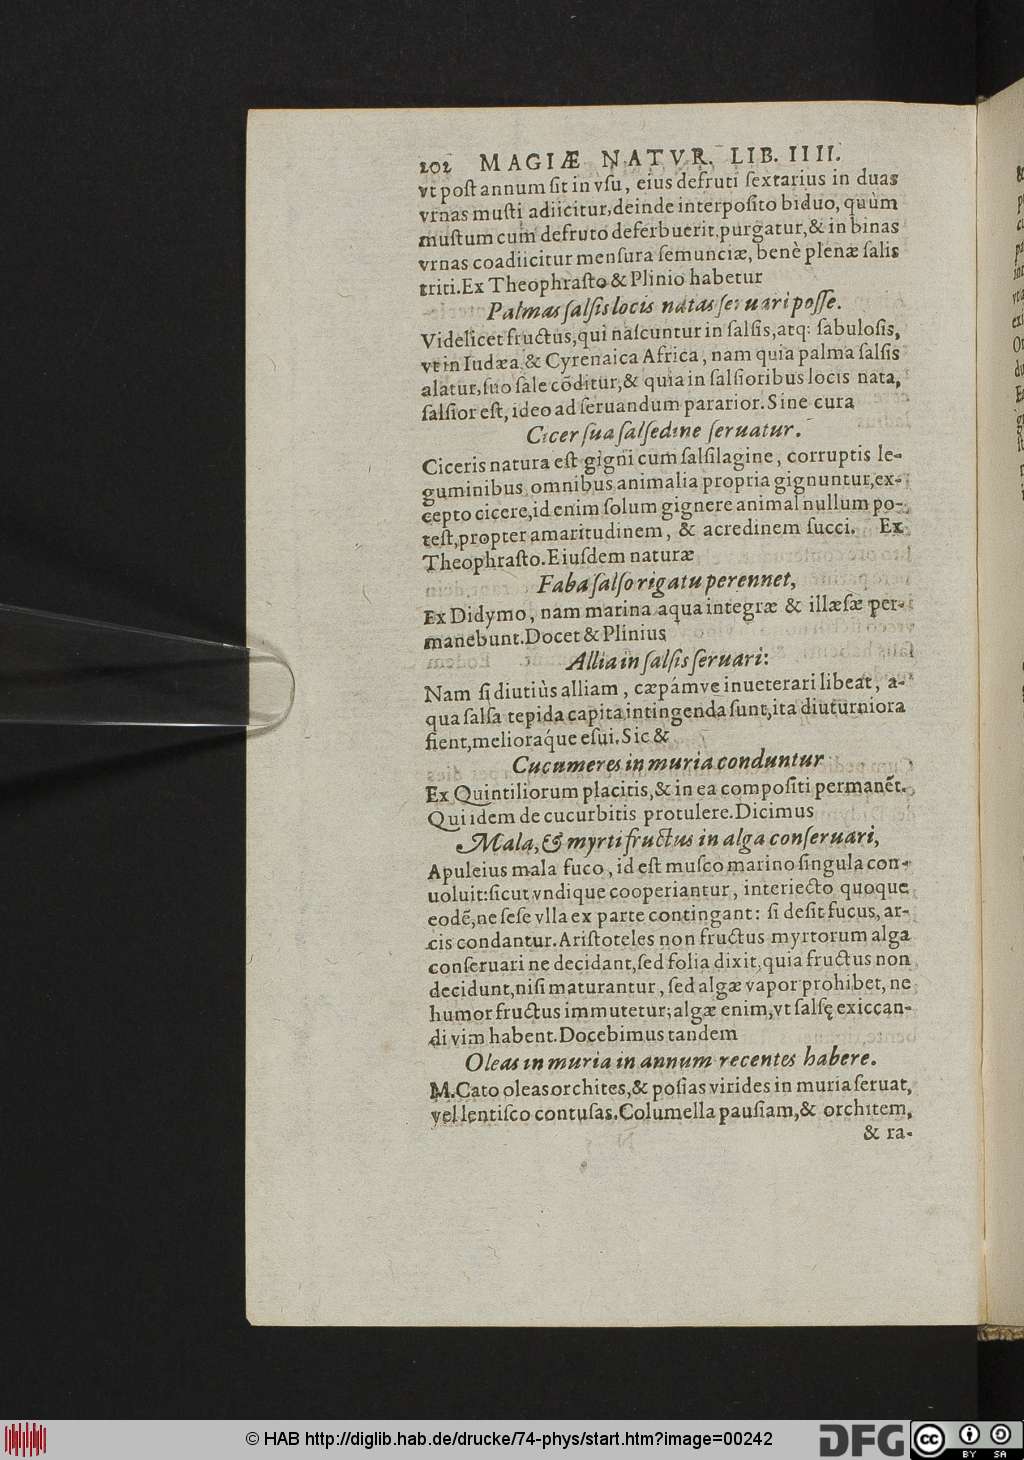 202 MAGIÆ NATVR. LIB. IIII.
vt poſt annum ſit in vſu, eius defruti ſextarius in duas
vrnas muſti adiicitur, deinde interpoſito biduo, quùm
muſtum cum defruto deferbuerit, purgatur, & in binas
vrnas coadiicitur menſura ſemunciæ, benè plenæ ſalis
triti. Ex Theophraſto & Plinio habetur
Palmas ſalſis locis natas ſeruari poſſe.
Videlicet fructus, qui naſcuntur in ſalſis, atq: ſabuloſis,
vt in Iudæa, & Cyrenaica Africa, nam quia palma ſalſis
alatur, ſuo ſale cōditur, & quia in ſalſioribus locis nata,
ſalſior eſt, ideo ad ſeruandum pararior. Sine cura
Cicer ſua ſalſedine ſeruatur.
Ciceris natura eſt gigni cum ſalſilagine, corruptis le-
guminibus omnibus animalia propria gignuntur, ex-
cepto cicere, id enim ſolum gignere animal nullum po-
teſt, propter amaritudinem, & acredinem ſucci. Ex
Theophraſto. Eiuſdem naturæ
Faba ſalſo rigatu perennet,
Ex Didymo, nam marina aqua integræ & illæſæ per-
manebunt. Docet & Plinius
Allia in ſalſis ſeruari:
Nam ſi diutiùs alliam, cæpámve inueterari libeat, a-
qua ſalſa tepida capita intingenda ſunt, ita diuturniora
fient, melioraq́ue eſui. Sic &
Cucumeres in muria conduntur
Ex Quintiliorum placitis, & in ea compoſiti permanēt.
Qui idem de cucurbitis protulere. Dicimus
Mala, & myrti fructus in alga conſeruari,
Apuleius mala fuco, id eſt muſco marino ſingula con-
uoluit: ſicut vndique cooperiantur, interiecto quoque
eodē, ne ſeſe vlla ex parte contingant: ſi deſit fucus, ar-
cis condantur. Ariſtoteles non fructus myrtorum alga
conſeruari ne decidant, ſed folia dixit, quia fructus non
decidunt, niſi maturantur, ſed algæ vapor prohibet, ne
humor fructus immutetur; algæ enim, vt ſalſę exiccan-
di vim habent. Docebimus tandem
Oleas in muria in annum recentes habere.
M. Cato oleas orchites, & poſias virides in muria ſeruat,
vel lentiſco contuſas. Columella pauſiam, & orchitem,
& ra-
© HAB http://diglib.hab.de/drucke/74-phys/start.htm?image=00242
DFG
cc BY SA